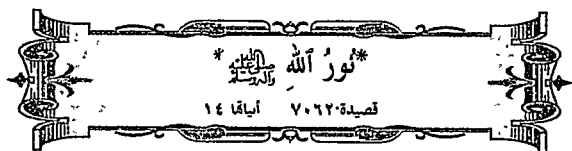 *نُورُ ٱللّٰهِ ﷺ*
قصيدة ٧٠٦٢ أبياتها ١٤